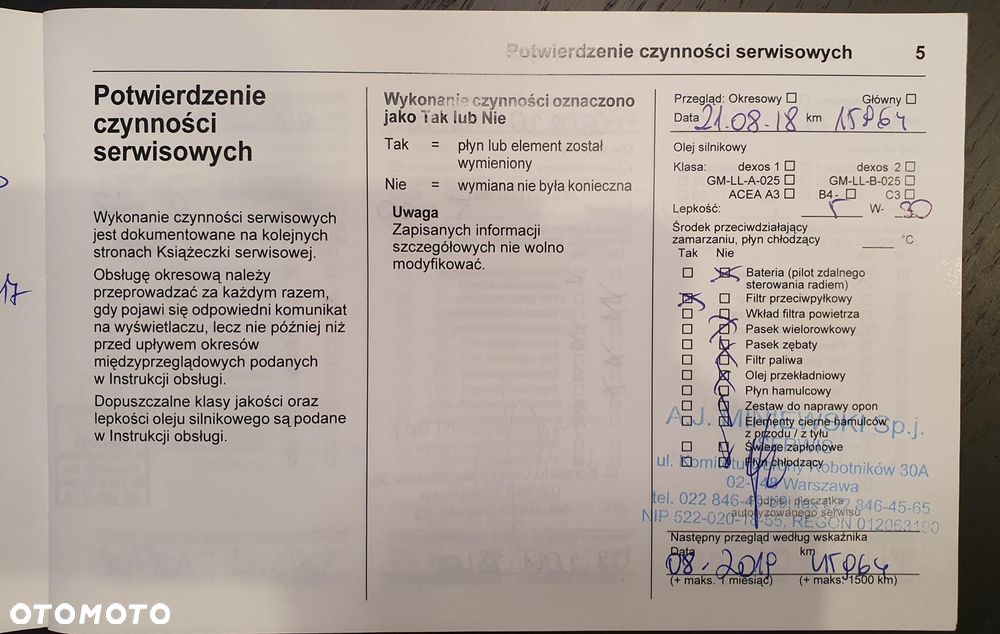 Potwierdzenie czynności serwisowych 5
Potwierdzenie
czynności
serwisowych
Wykonanie czynności serwisowych
jest dokumentowane na kolejnych
stronach Książeczki serwisowej.
Obsługę okresową należy
przeprowadzać za każdym razem,
gdy pojawi się odpowiedni komunikat
na wyświetlaczu, lecz nie później niż
przed upływem okresów
międzyprzeglądowych podanych
w Instrukcji obsługi.
Dopuszczalne klasy jakości oraz
lepkości oleju silnikowego są podane
w Instrukcji obsługi.
Wykonanie czynności oznaczono
jako Tak lub Nie
Tak = płyn lub element został
wymieniony
Nie = wymiana nie była konieczna
Uwaga
Zapisanych informacji
szczegółowych nie wolno
modyfikować.
Przegląd: Okresowy Główny
Data 21.08.18 km 15864
Olej silnikowy
Klasa: dexos 1 dexos 2
GM-LL-A-025 GM-LL-B-025
ACEA A3 B4- C3
Lepkość: 5 W- 30
Środek przeciwdziałający
zamarzaniu, płyn chłodzący °C
Tak Nie
Bateria (pilot zdalnego
sterowania radiem)
Filtr przeciwpyłkowy
Wkład filtra powietrza
Pasek wielorowkowy
Pasek zębaty
Filtr paliwa
Olej przekładniowy
Płyn hamulcowy
Zestaw do naprawy opon
Elementy cierne hamulców
z przodu / z tyłu
Świece zapłonowe
Płyn chłodzący
A.J. MINIEWSKI Sp.j.
SERWIS
ul. Komitetu Obrony Robotników 30A
02-148 Warszawa
tel. 022 846- fax 022 846-45-65
NIP 522-020-18-55, REGON 012063190
Podpis i pieczątka
autoryzowanego serwisu
Następny przegląd według wskaźnika
Data km
08-2019 45864
(+ maks. 1 miesiąc) (+ maks. 1500 km)
17
OTOMOTO